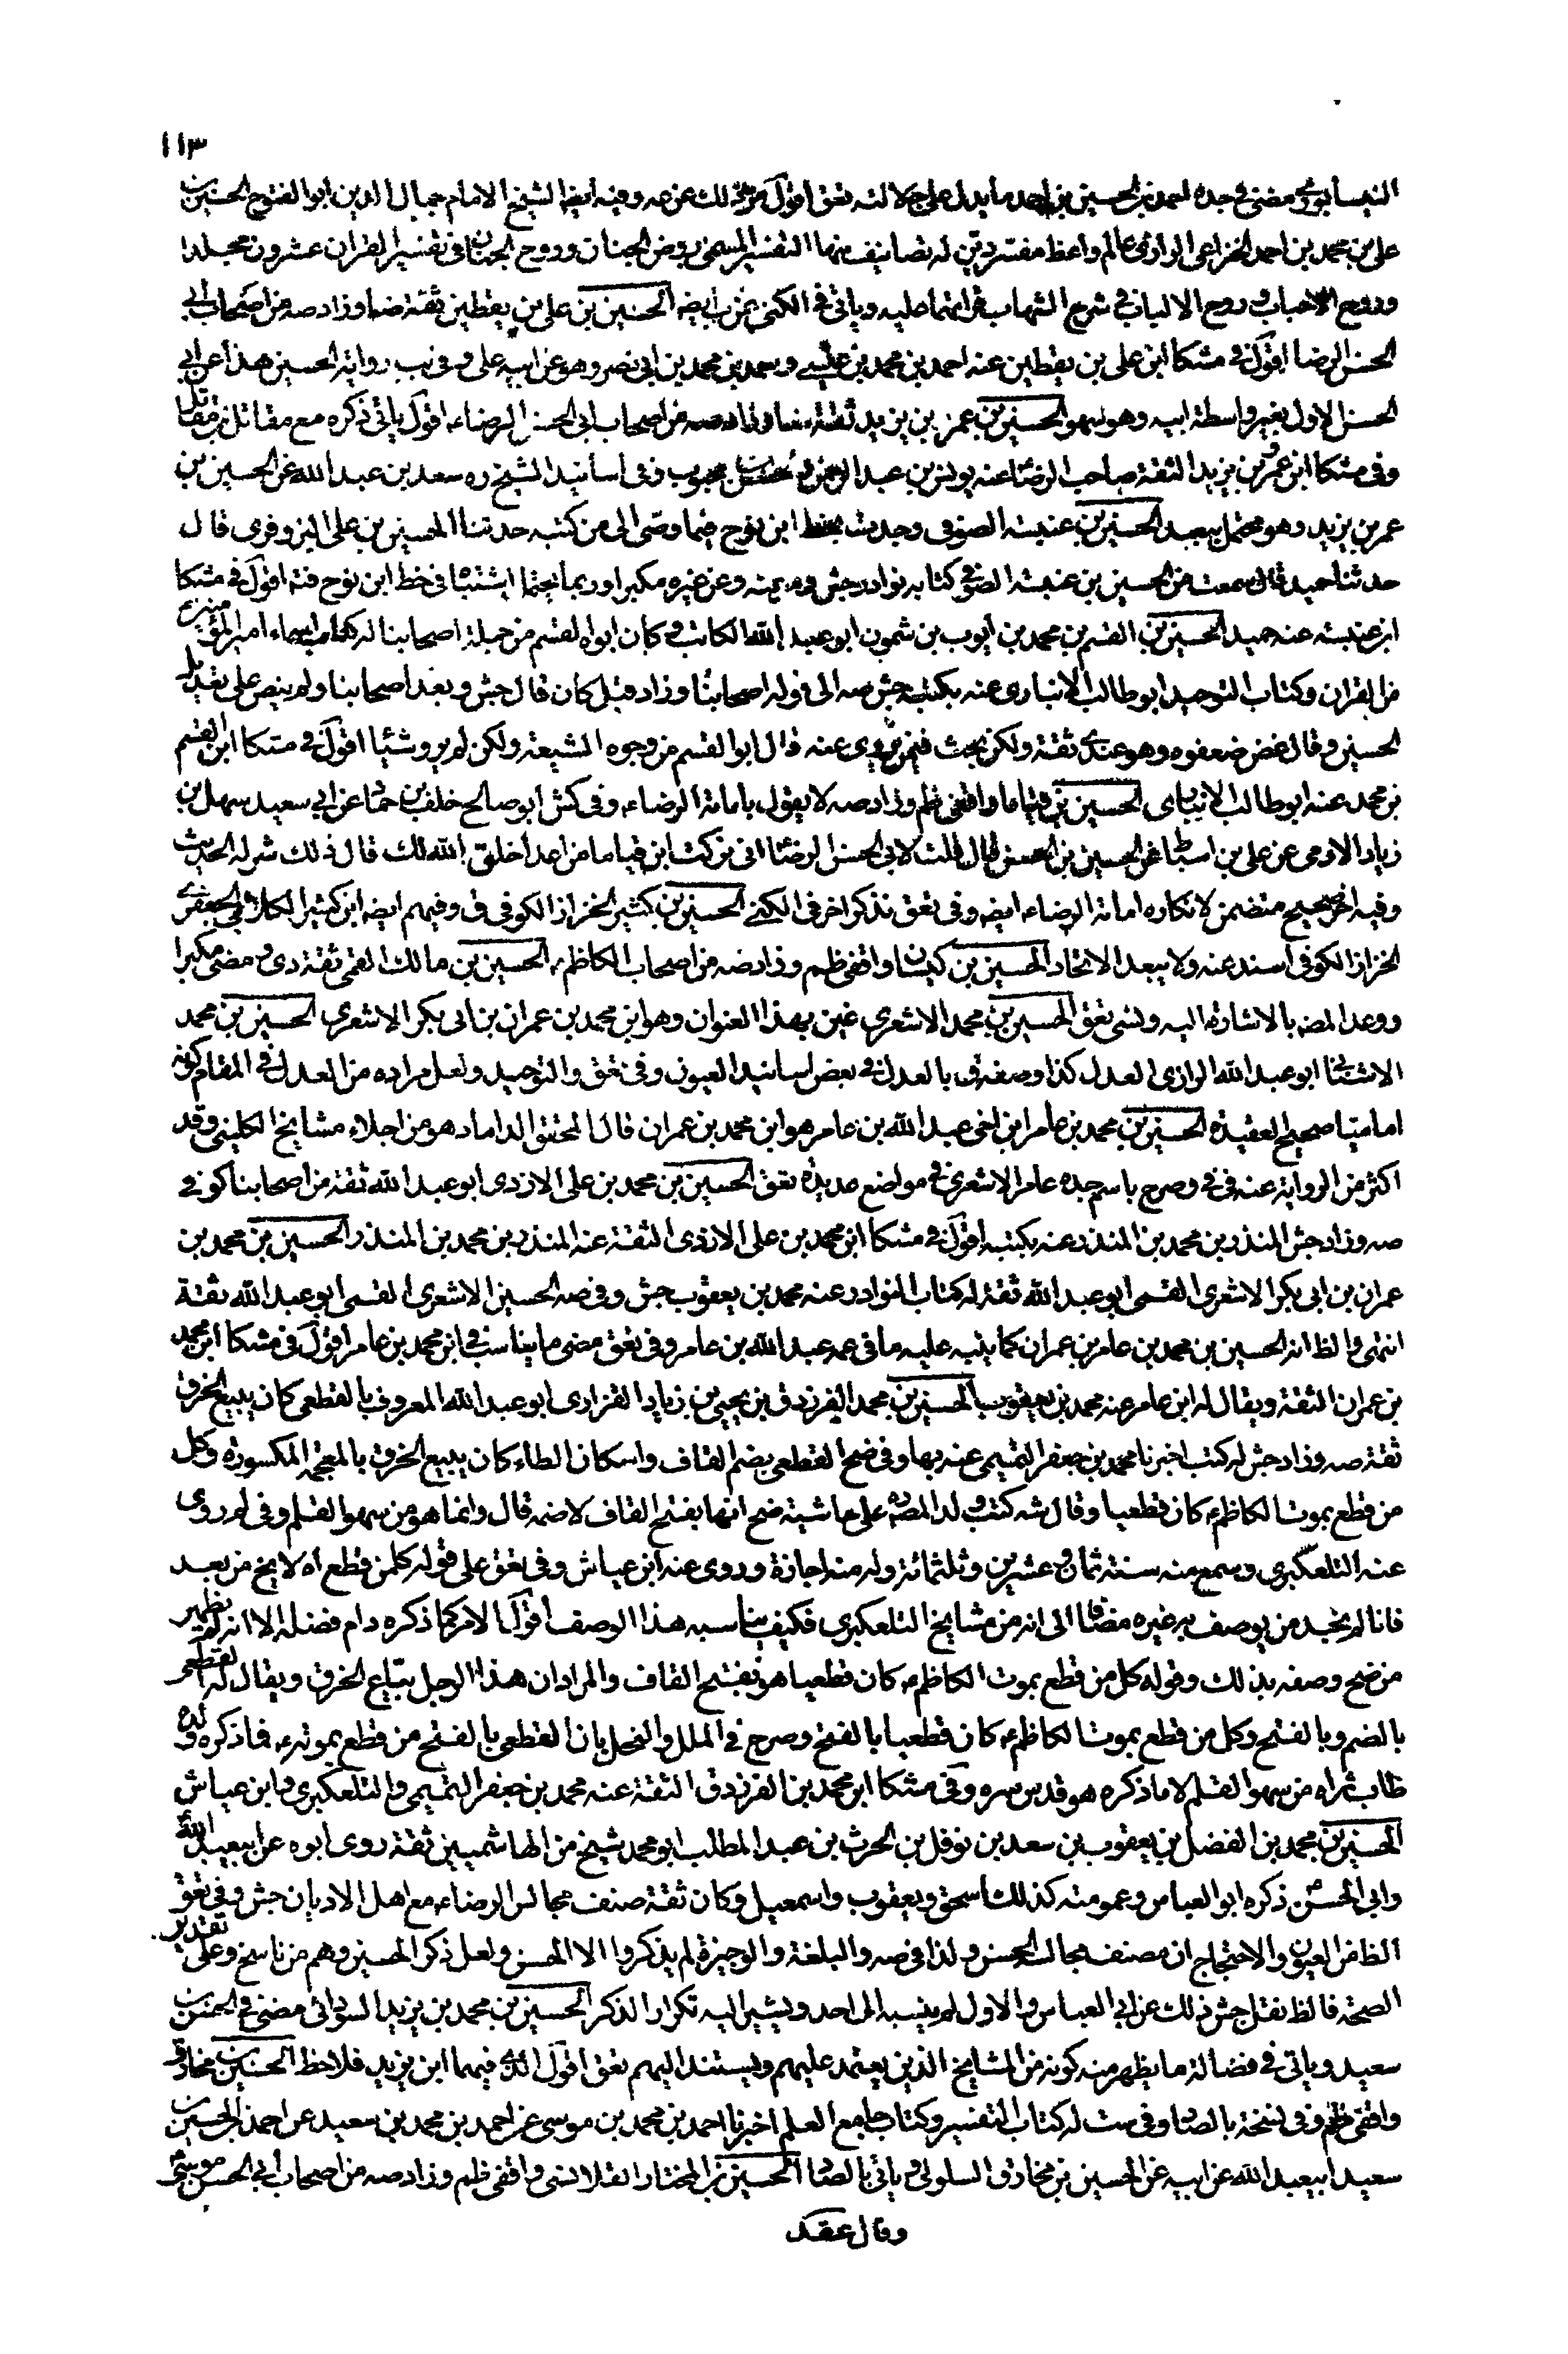 ١١٣
النيسابوري مضى في جده احمد بن الحسين بن احمد ما يدل على جلالته تعق اقول مر ذلك عن عه وفيه ايضا الشيخ الامام جمال الدين ابو الفتوح الحسين بن
على بن محمد بن احمد الخزاعى الرازى عالم واعظ مفسر دين له تصانيف منها التفسير المسمى روض الجنان وروح الجنان في تفسير القران عشرون مجلدا
وروح الاحباب وروح الالباب في شرح الشهاب قراتهما عليه وياتى في الكنى عن ب ايضه الحسين بن على بن يقطين ثقة ضا وزاد صه من اصحاب ابى
الحسن الرضا اقول في مشكا ابن على بن يقطين عنه احمد بن محمد بن عيسى و محمد بن ابى نصر وهو عن ابيه على وفى يب رواية الحسين هذا عن ابى
الحسن الاول بغير واسطة ابيه وهو سهو الحسين بن عمر بن يزيد ثقة ضا وزاد صه من اصحاب ابى الحسن الرضاء اقول ياتى ذكره مع مقاتل بن مقاتل
وفى مشكا ابن عمر بن يزيد الثقة صاحب الرضا عنه يونس بن عبد الرحمن و محبوب وفى اسانيد الشيخ ره سعد بن عبد الله عن الحسين بن
عمر بن يزيد وهو محتمل ببعد الحسين بن عنبسة الصوفى وجدت بخط ابن نوح فيما وصى الى من كتبه حدثنا الحسين بن على البزوفرى قال
حدثنا حميد قال سمعت من الحسين بن عنبسة الصوفى كتابه نوادر جش ومر عنه وعن غيره مكبرا وربما اشتبها في خط ابن نوح فته اقول في مشكا
ابن عنبسة عنه حميد الحسين بن القسم بن محمد بن ايوب بن شمون ابو عبد الله الكاتب وكان ابوه القسم من جلة اصحابنا له كتاب اسماء امير المؤمنين ع
من القران وكتاب التوحيد ابو طالب الانبارى عنه بكتبه جش صه الى قوله اصحابنا وزاد قبل كان قال جش وبعد اصحابنا ولم ينص على تعديل
الحسين وقال غض ضعفوه وهو عندى ثقة ولكن بحث فيمن يروى عنه قال ابو القسم من وجوه الشيعة ولكن لم يرو شيئا اقول في مشكا ابن القسم
بن محمد عنه ابو طالب الانبارى الحسين بن قياما واقفى ظم وزاد صه لا يقول بامامة الرضاء وفى كش ابو صالح خلف بن حماد عن ابى سعيد سهل بن
زياد الادمى عن على بن اسباط عن الحسين بن الحسن قال قلت لابى الحسن الرضا انى تركت ابن قياما من اعدا خلق الله لك قال ذلك شر له الحديث
وفيه اخر صحيح متضمن لانكاره امامة الرضاء ايضه وفى تعق نذكر اخر في الكنى الحسين بن كثير الخزاز الكوفى ق وفيهم ايضه ابن كثير الكلابى الجعفرى
الخزاز الكوفى اسند عنه ولا يبعد الاتحاد الحسين بن كيسان واقفى ظم وزاد صه من اصحاب الكاظم ع الحسين بن مالك القمى ثقة دى ومضى مكبرا
ووعد المصه بالاشارة اليه ونسى تعق الحسين بن محمد الاشعرى غير بهذا العنوان وهو ابن محمد بن عمران بن ابى بكر الاشعرى الحسين بن محمد
الاشنانى ابو عبد الله الرازى العدل كذا وصفه ق بالعدل في بعض اسانيد العيون وفى تعق والتوحيد ولعل مراده من العدل في المقام كونه
اماميا صحيح العقيدة الحسين بن محمد بن عامر ابن اخى عبد الله بن عامر هو ابن محمد بن عمران قال المحقق الداماد هو من اجلاء مشايخ الكلينى وقد
اكثر من الرواية عنه في في وصرح باسم جده عامر الاشعرى في مواضع عديدة تعق الحسين بن محمد بن على الازدى ابو عبد الله ثقة من اصحابنا كوفى
صه وزاد جش المنذر بن محمد بن المنذر عنه بكتبه اقول في مشكا ابن محمد بن على الازدى الثقة عنه المنذر بن محمد بن المنذر الحسين بن محمد بن
عمران بن ابى بكر الاشعرى القمى ابو عبد الله ثقة له كتاب النوادر عنه محمد بن يعقوب جش وفى صه الحسين الاشعرى القمى ابو عبد الله ثقة
انتهى والظ انه الحسين بن محمد بن عامر بن عمران كما ينبه عليه ما في عمه عبد الله بن عامر وفى تعق مضى ما يناسب في ابن محمد بن عامر اقول في مشكا ابن محمد
بن عمران الثقة ويقال له ابن عامر عنه محمد بن يعقوب الحسين بن محمد الفرزدق بن يحيى بن زياد الفزارى ابو عبد الله المعروف بالقطعى كان يبيع الخرق
ثقة صه وزاد جش له كتب اخبرنا محمد بن جعفر التميمى عنه بها وفى ضح القطعى بضم القاف واسكان الطاء كان يبيع الخرق بالمعجمة المكسورة وكل
من قطع بموت الكاظم ع كان قطعيا وقال شه كتب ولد المصره على حاشية ضح انها بفتح القاف لا ضمه قال وانما هو من سهو القلم وفى لم روى
عنه التلعكبرى وسمع منه سنة ثمان وعشرين وثلثمائة وله منه اجازة وروى عنه ابن عياش وفى تعق على قوله كل من قطع اه لا يخ من بعد
فانا لم نجد من يوصف به غيره مضافا الى انه من مشايخ التلعكبرى فكيف يناسبه هذا الوصف اقول الامر كما ذكره دام فضله الا انه لم يظهر
من ضح وصفه بذلك وقوله كل من قطع بموت الكاظم ع كان قطعيا هو بفتح القاف والمراد ان هذا الرجل بياع الخرق ويقال له القطعى
بالضم وبالفتح وكل من قطع بموت الكاظم ع كان قطعيا بالفتح وصرح في الملل والنحل بان القطعى بالفتح من قطع بموته ع فما ذكره ولده
طاب ثراه من سهو القلم لا ما ذكره هو قدس سره وفى مشكا ابن محمد بن الفرزدق الثقة عنه محمد بن جعفر التميمى والتلعكبرى وابن عياش
الحسين بن محمد بن الفضل بن يعقوب بن سعد بن نوفل بن الحرث بن عبد المطلب ابو محمد شيخ من الهاشميين ثقة روى ابوه عن ابيعبد الله
وابى الحسن ذكره ابو العباس وعمومته كذلك اسحق ويعقوب واسمعيل وكان ثقة صنف مجالس الرضاء مع اهل الاديان جش وفى تعق
الظ من العيون والاحتجاج ان مصنف مجالسه الحسن ولذا في صه والبلغة والوجيزة لم يذكروا الا الحسن ولعل ذكر الحسين وهم من ناسخ وعلى تقدير
الصحة فالظ نقل جش ذلك عن ابى العباس والاول لم ينسبه الى احد ويشير اليه تكرار الذكر الحسين بن محمد بن يزيد السورائى مضى في الحسن بن
سعيد وياتى في فضالة ما يظهر منه كونه من المشايخ الذين يعتمد عليهم ويستند اليهم تعق اقول الذى فيهما ابن يزيد فلاحظ الحسين بن مخارق
واقفى ظم وفى نسخة بالصاد وفى ست له كتاب التفسير وكتاب جامع العلم اخبرنا احمد بن محمد بن موسى عن احمد بن محمد بن سعيد عن احمد بن الحسين بن
سعيد ابيعبد الله عن ابيه عن الحسين بن مخارق السلولى وياتى بالصاد الحسين بن المختار القلانسى واقفى ظم وزاد صه من اصحاب ابى الحسن موسى ع
وقال عقد